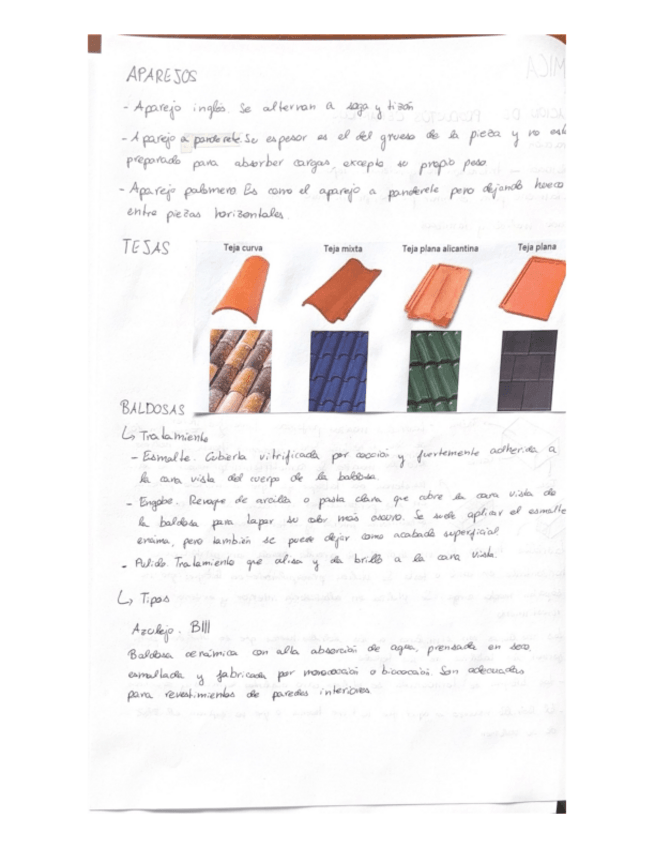 APAREJOS
- Aparejo inglés. Se alternan a soga y tizón
- Aparejo a panderete. Su espesor es el del grueso de la pieza y no est
preparado para absorber cargas, excepto su propio peso
- Aparejo palomero Es como el aparejo a panderete pero dejando hueco
entre piezas horizontales.
TEJAS
Teja curva Teja mixta Teja plana alicantina Teja plana
BALDOSAS
↳ Tratamiento
- Esmalte. Cubierta vitrificada por cocción y fuertemente adherida a
la cara vista del cuerpo de la baldosa
- Engobe. Revoque de arcilla o pasta clara que cubre la cara vista de
la baldosa para tapar su color más oscuro. Se suele aplicar el esmalte
encima, pero también se puede dejar como acabado superficial
- Pulido. Tratamiento que alisa y da brillo a la cara vista.
↳ Tipos
Azulejo. BIII
Baldosa cerámica con alta absorción de agua, prensada en seco,
esmaltada y fabricada por monococción o bicocción Son adecuadas
para revestimientos de paredes interiores